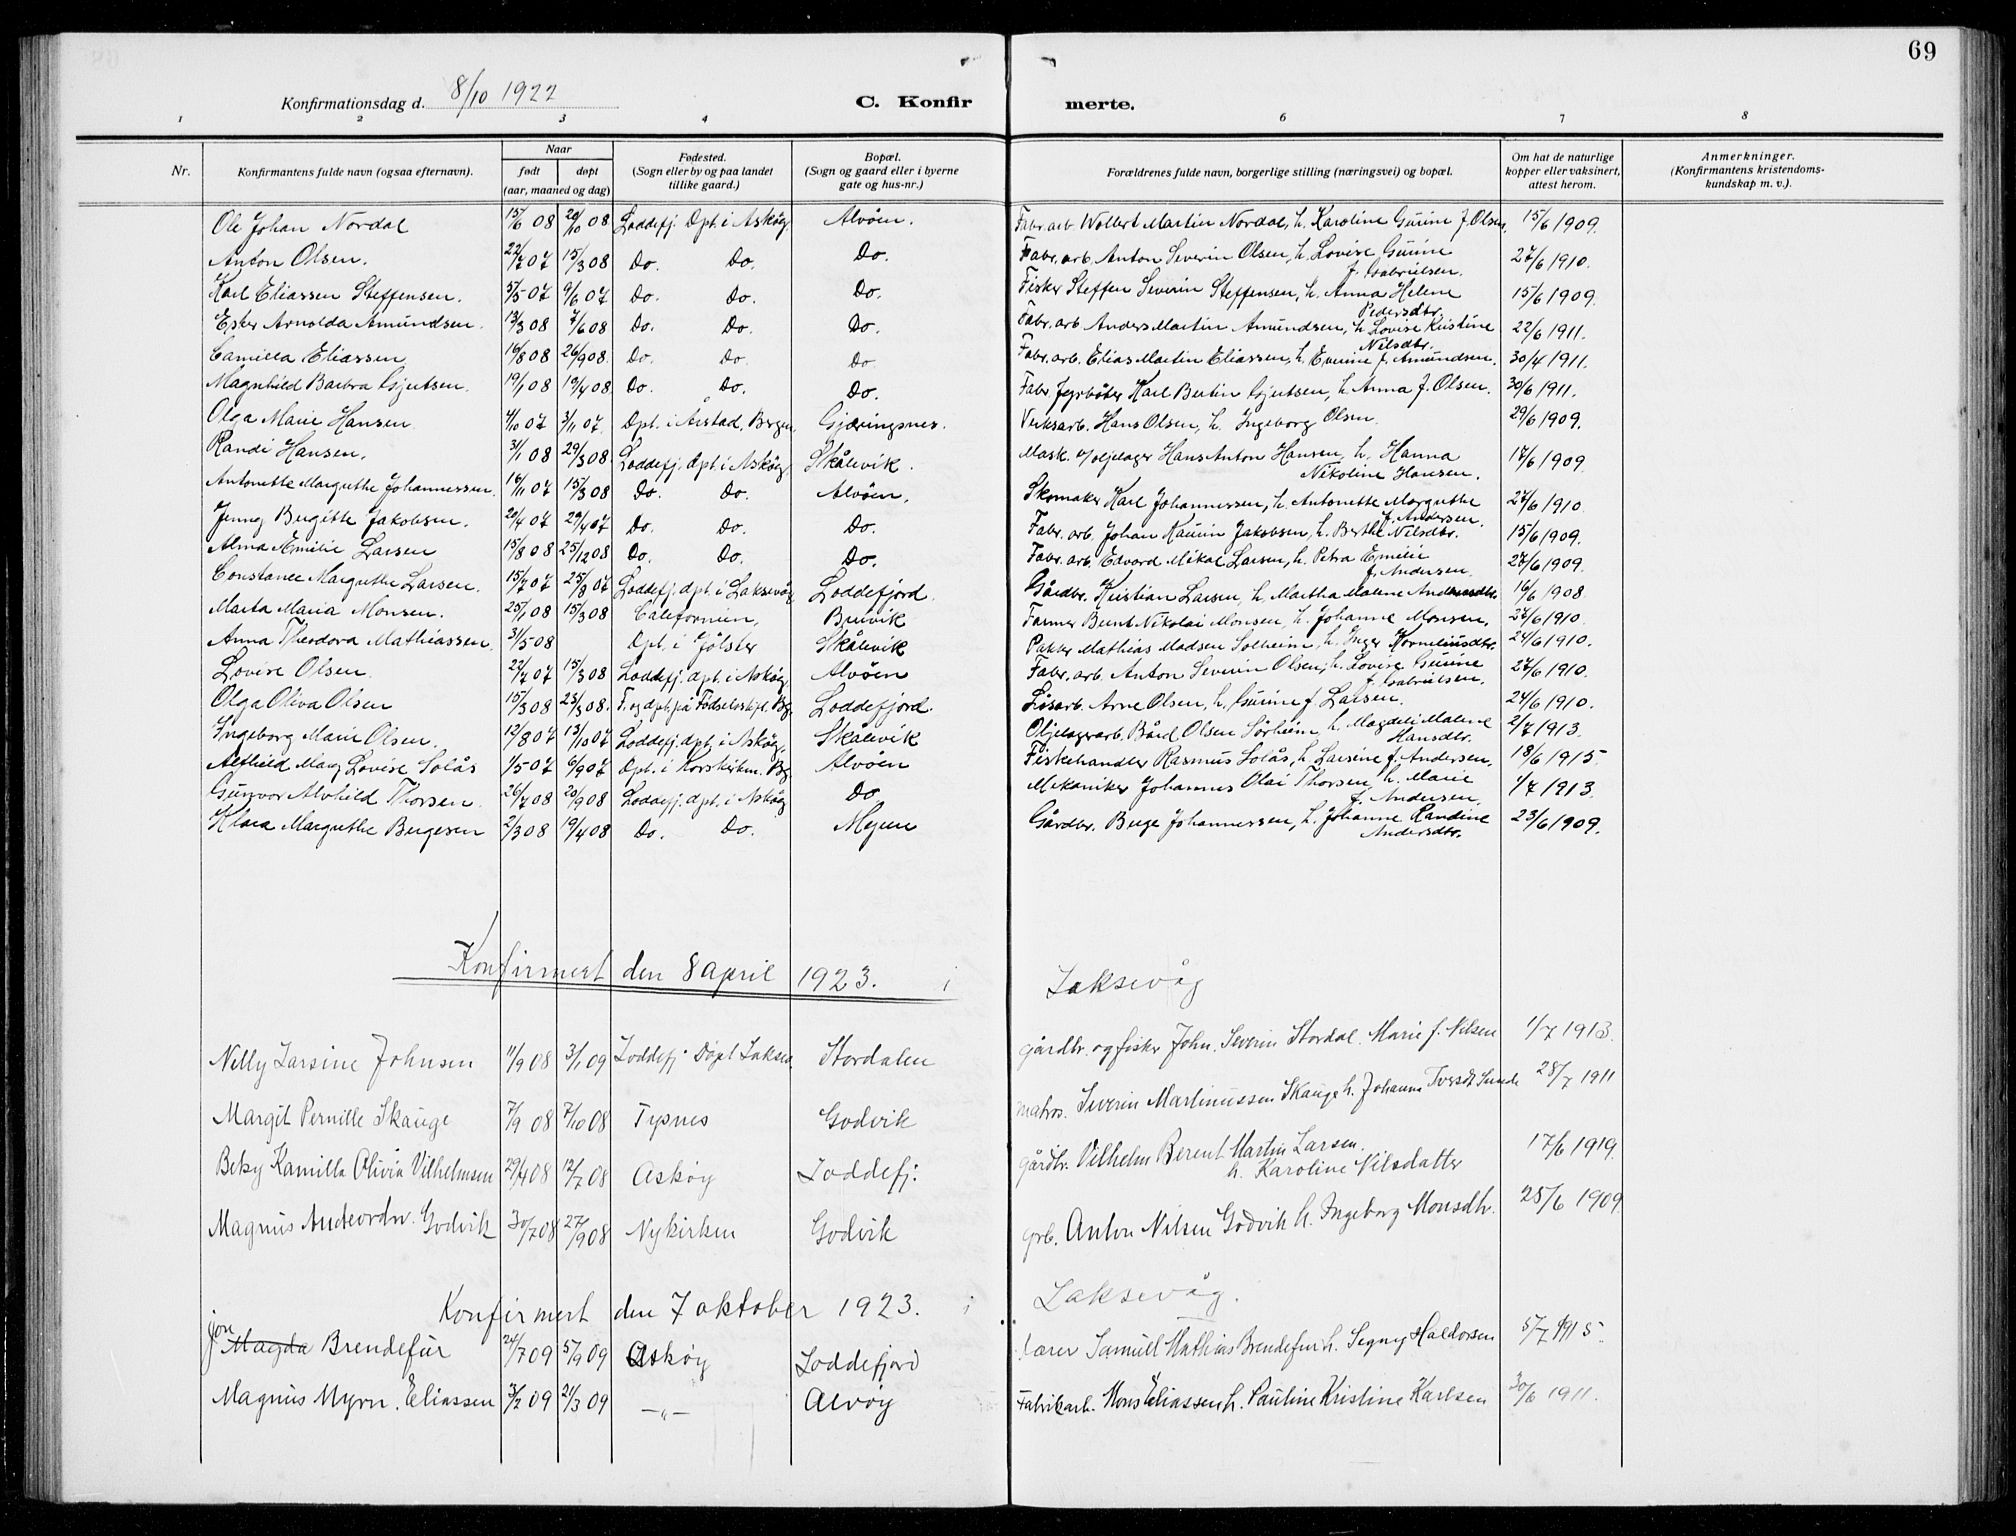 69
Konfirmationsdag d. 8/10 1922 C. Konfirmerte.
1 2 3 4 6 7 8
Nr. Konfirmantens fulde navn (ogsaa efternavn). Naar født døpt (aar, maaned og dag) Fødested. (Sogn eller by og paa landet tillike gaard.) Bopæl. (Sogn og gaard eller i byerne gate og hus-nr.) Forældrenes fulde navn, borgerlige stilling (næringsvei) og bopæl. Om hat de naturlige kopper eller vaksinert, attest herom. Anmerkninger. (Konfirmantens kristendomskundskap m. v.).
Ole Johan Nordal 15/6 08 20/10 08 Loddefj. Dpt. i Askøy Alvøen. Fabr. arb. Wollert Martin Nordal, h. Karoline Gurine f. Olsen. 15/6 1909.
Anton Olsen. 22/7 07 15/3 08 Do. Do. Do. Fabr. arb. Anton Severin Olsen, h. Lovise Gurine f. Gabrielsen. 27/6 1910.
Karl Eliassen Steffensen. 5/5 07 9/6 07 Do. Do. Do. Fisker Steffen Severin Steffensen, h. Anna Helene Pedersdtr. 15/6 1909.
Ester Arnolda Amundsen. 13/3 08 7/6 08 Do. Do. Do. Fabr. arb. Anders Martin Amundsen, h. Lovise Kristine Nilsdtr. 22/6 1911.
Camilla Eliassen 16/8 08 26/9 08 Do. Do. Do Fabr. arb. Elias Martin Eliassen, h. Evrine f. Amundsen. 30/4 1911.
Magnhild Barbra Gjertsen. 19/1 08 19/4 08 Do. Do. Do. Fabr. fyrbøter Karl Bertin Gjertsen, h. Anna f. Olsen. 30/6 1911.
Olga Marie Hansen 4/10 07 3/11 07. Dpt. i Årstad, Bergen. Gjæringsnes. Verksarb. Hans Olsen, h. Ingeborg Olsen. 29/6 1909.
Randi Hansen. 31/1 08 29/3 08 Loddefj. dpt. i Askøy Skålevik. Mask. v/oljelager Hans Anton Hansen, h. Hanna Nikoline Hansen. 17/6 1909.
Antonette Margrethe Johannessen. 16/11 07 15/3 08 Do. Do. Alvøen. Skomaker Karl Johannessen, h. Antonette Margrethe f. Andersen. 27/6 1910.
Jenny Birgitte Jakobsen. 20/4 07 29/4 07 Do. Do. Do. Fabr. arb. Johan Kaurin Jakobsen, h. Berthe Nilsdtr. 15/6 1909.
Alma Emilie Larsen 15/8 08 25/12 08 Do. Do. Do. Fabr. arb. Edvard Mikal Larsen, h. Petra Emilie f. Andersen. 27/6 1909.
Constance Margrethe Larsen. 15/7 07 25/8 07 Loddefj. dpt. i Laksevåg Loddefjord. Gårdbr. Kristian Larsen, h. Martha Malene Andersdtr. 16/6 1908.
Marta Maria Monsen. 25/1 08 15/3 08 Californien, Bruvik Farmer Bernt Nikolai Monsen, h. Johanne Monsen. 27/6 1910.
Anna Theodora Mathiassen. 31/5 08 Dpt. i Jølster Skålevik Pakker Mathias Madsen Solheim, h. Inger Korneliusdtr. 24/6 1910.
Lovise Olsen. 22/7 07 15/3 08 Loddefj. dpt. i Askøy Alvøen Fabr. arb. Anton Severin Olsen, h. Lovise Gurine f. Gabrielsen. 27/6 1910.
Olga Oliva Olsen 15/3 08 23/3 08. F. og dpt. på Fødselsstift. Bg. Loddefjord. Løsarb. Arne Olsen, h. Gurine f. Larsen. 24/6 1910.
Ingeborg Marie Olsen. 12/8 07 13/10 07 Loddefj. dpt. i Askøy. Skålevik Oljelagerarb. Bård Olsen Sørheim, h. Magdeli Malene Hansdtr. 2/7 1913.
Alfhild Marg Lovise Solås 1/5 07 6/9 07 Dpt. i Korskirken. Bg. Alvøen Fiskehandler Rasmus Solås, h. Larsine f. Andersen. 18/6 1915.
Gunvor Alvhild Thorsen. 26/7 08 20/9 08 Loddefj. dpt. i Askøy Do Mekaniker Johannes Olai Thorsen, h. Marie f. Andersen. 1/7 1913.
Klara Margrethe Bergesen 2/3 08 19/4 08 Do. Do. Mejen Gårdbr. Berge Johannessen, h. Johanne Randine Andersdtr. 23/6 1909.
Konfirmert den 8 april 1923. i Laksevåg
Nelly Larsine Johnsen 11/9 08 3/1 09 Loddefj. Døpt Laksev. Stordalen gårdbr. og fisker John. Severin Stordal. Marie f. Nilsen 1/7 1913.
Margit Pernille Skauge 7/9 08 7/10 08 Tysnes Godvik matros. Severin Martinussen Skauge h. Johanne Iversdt Sunde 28/7 1911
Beky Kamilla Olivia Vilhelmsen 29/4 08 12/7 08 Askøy Loddefj: gårdbr. Vilhelm Berent Martin Larsen. h. Karoline Nilsdatter 17/6 1919.
Magnus Godvik 30/7 08 27/9 08 Nykirken Godvik grb. Anton Nilsen Godvik h. Ingeborg Monsdtr. 25/6 1909
Konfirmert den 7 oktober 1923. i Laksevåg.
jon Magda Brendefur 24/7 09 5/9 09 Askøy Loddefjord Lærer Samuel Mathias Brendefur h. Segny Haldorsen 5/7 1915.
Magnus Myrn. Eliassen 3/2 09 21/3 09 —„— Alvøy Fabrikarb. Mons Eliassen h. Pauline Kristine Karlsen 30/6 1911.